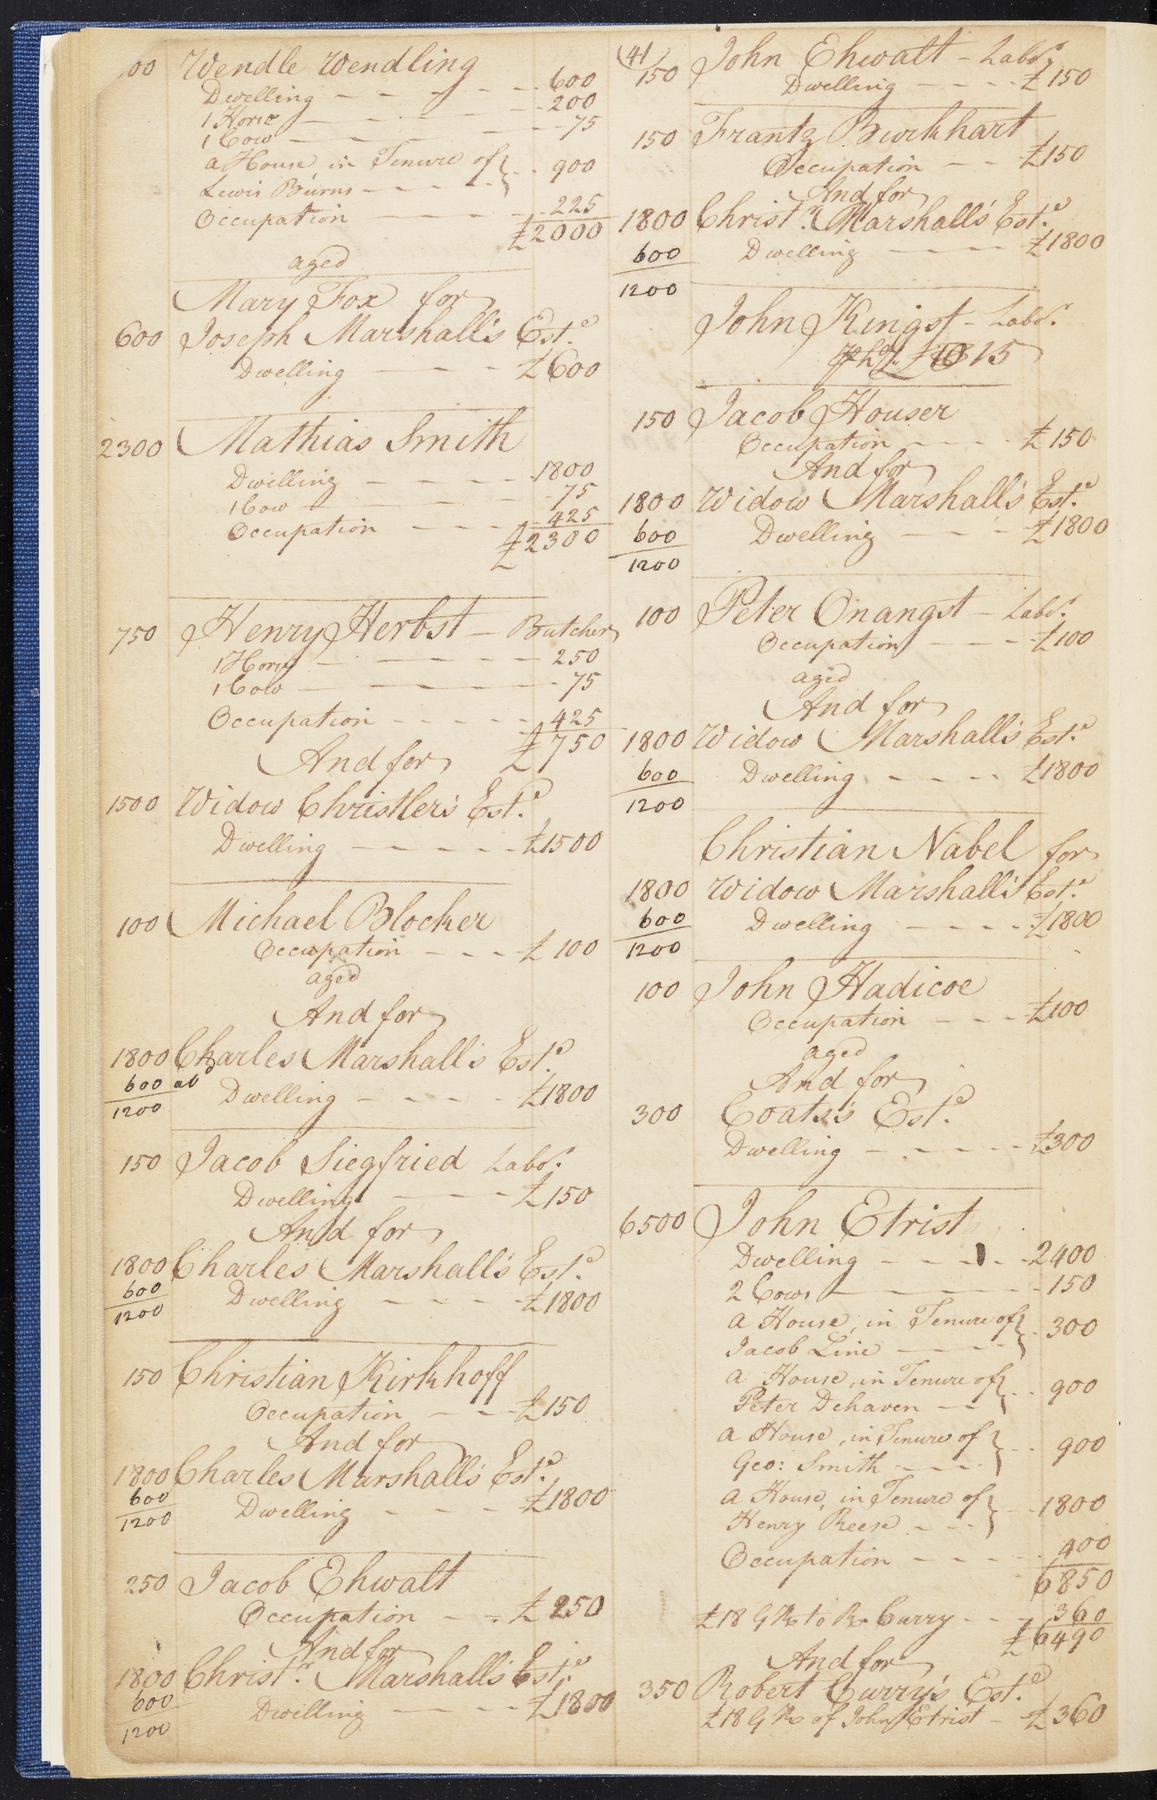 00 Wendle Wendling
Dwelling 600
1 Horse 200
1 Cow 75
a House in Tenure of
Lewis Burns 900
Occupation 225
£2000
aged
Mary Fox for
600 Joseph Marshall's Est.e
Dwelling £600
2300 Mathias Smith
Dwelling 1800
1 Cow 75
Occupation 425
£2300
750 Henry Herbst - Butcher
1 Horse 250
1 Cow 75
Occupation 425
£750
And for
1500 Widow Christler's Est.e
Dwelling £1500
100 Michael Blocker
Occupation £100
aged
And for
1800 Charles Marshall's Est.e
600 ab
Dwelling £1800
1200
150 Jacob Siegfried Labo.r
Dwelling £150
And for
1800 Charles Marshall's Est.e
600 Dwelling £1800
1200
150 Christian Kirkhoff
Occupation £150
And for
1800 Charles Marshall's Est.e
600 Dwelling £1800
1200
250 Jacob Ehwalt
Occupation £250
And for
1800 Christ.r Marshall's Est.e
600 Dwelling £1800
1200
(41
150 John Ehwalt - Labo.r
Dwelling £150
150 Frantz Burkhart
Occupation £150
And for
1800 Christ.r Marshall's Est.e
600 Dwelling £1800
1200
John Kingsf - Labo.r
15
150 Jacob Houser
Occupation £150
And for
1800 Widow Marshall's Est.e
600 Dwelling £1800
1200
100 Peter Onangst - Labo.r
Occupation £100
aged
And for
1800 Widow Marshall's Est.e
600 Dwelling £1800
1200
Christian Nabel for
1800 Widow Marshall's Est.e
600 Dwelling £1800
1200
100 John Hadicoe
Occupation £100
aged
And for
300 Coats's Est.e
Dwelling £300
6500 John Etrist
Dwelling 2400
2 Cows 150
a House, in Tenure of
Jacob Line 300
a House, in Tenure of
Peter Dehaven 900
a House, in Tenure of
Geo: Smith 900
a House, in Tenure of
Henry Reese 1800
Occupation 400
6850
£18 G R to R. Curry 360
£6490
And for
350 Robert Curry's Est.e
£18 G R of John Etrist £360